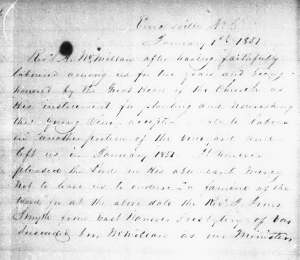 January 1st 1881
Rev. McMillan after having faithfully
labored among us for two years and being
honored by the Great Head of the Church as
His instrument for planting and nourishing
this young vine accepts to labor
in another portion of the vineyard and
left us in January 1881 However
pleased the Lord in His abundant mercy
not to leave us to endure famine of the
Word for at the above date the Rev. J.
Smyth from East Hanover Presbytery of Va
succeeded Mr. McMillan as our Minister